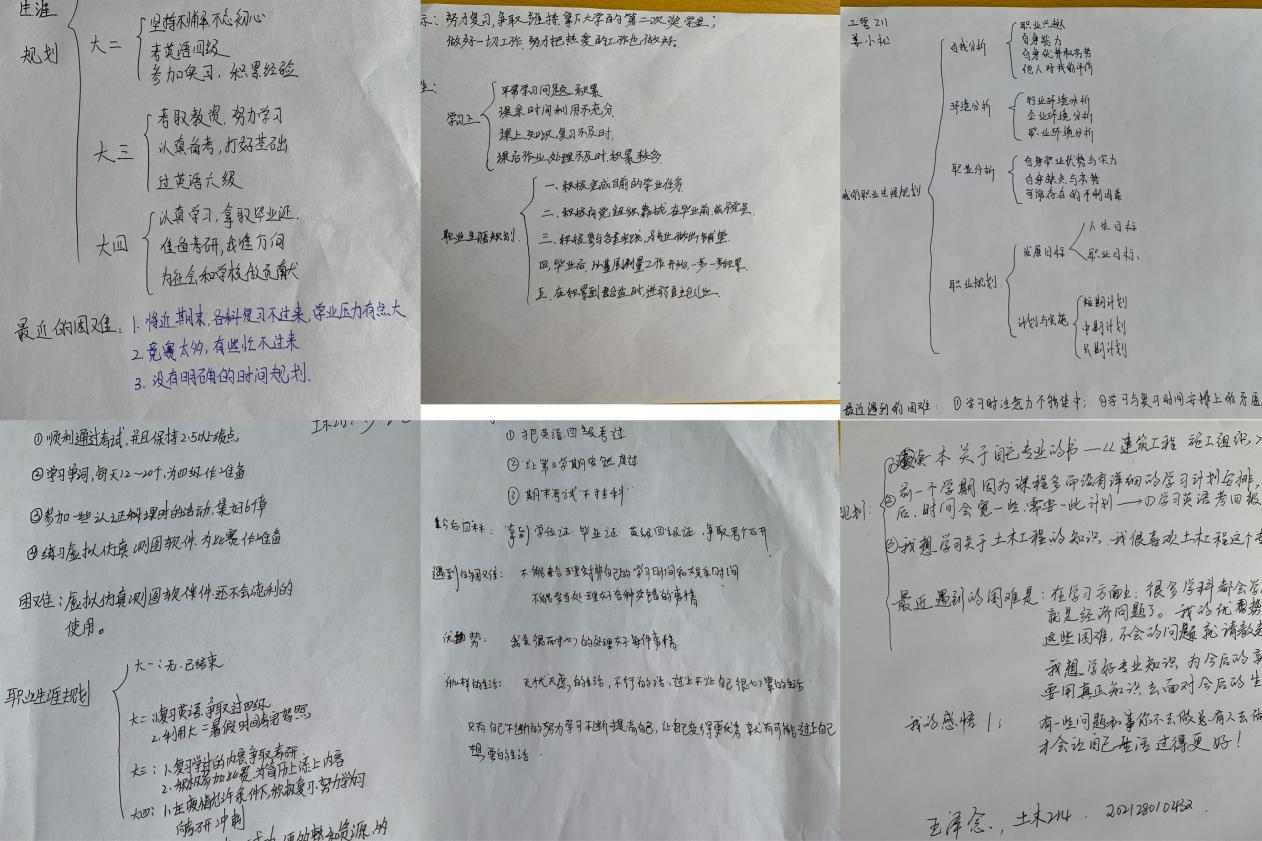 生涯
规划
大二
坚持不懈不忘初心
考英语四级
参加复习，积累经验
大三
考取教资，努力学习
认真备考，打好基础
过英语六级
大四
认真学习，拿取毕业证，
准备考研，找准方向
为社会和学校做贡献
最近的困难：1. 将近期末，各科复习不过来，学业压力有点大
2. 竞赛太多，有些忙不过来
3. 没有明确的时间规划.
示：努力复习，争取维持拿下大学的第二次奖学金；
做好一切工作，努力把热爱的工作也做好.
学习上
平常学习问题积累
课余时间利用不充分
课上知识，复习不及时.
课后作业，处理不及时，积累较多.
职业生涯规划
一、积极完成目前的学业任务
二、积极向党组织靠拢，在毕业前，成为党员.
三、积极参与各类实践，为专业做些铺垫.
四、毕业后，从基层测量工作开始，一步一步积累.
五、在积累到合适时，进行自主创业.
工管211
姜小松
我的职业生涯规划
自我分析
职业兴趣
自身能力
自身优势和劣势
他人对我的评价
环境分析
行业环境分析
企业环境分析
职业环境分析
职业分析
自身职业优势与实力
自身缺失与劣势
可能存在的不利因素
职业规划
发展目标
人生目标
职业目标、
计划与实施
短期计划
中期计划
长期计划
最近遇到的困难：①学习时注意力不够集中；②学习与复习时间安排上的方面
①顺利通过考试，并且保持2.5以上绩点
②学习单词，每天12～20个，为四级作准备
③参加一些认证和课时的活动，集好6博
④练习虚拟仿真测图软件，为比赛作准备
困难：虚拟仿真测图软件还不会流利的
使用。
职业生涯规划
大一：无，已结束
大二：1.复习英语，争取过四级
2.利用大二暑假时间考驾照
大三：1.复习学过的内容争取考研
2.积极参加比赛，为简历上添上内容
大四：1.在疫情允许条件下，积极复习，努力学习
向考研冲刺
①把英语四级考过
②让第三学期安然度过
③期末考试不挂科
今后目标：拿到学位证 毕业证 英级四级证，争取两个公开
遇到的困难：不能够合理安排自己的学习时间和娱乐时间
不能妥当处理好各种交错的事情
优势：我会很耐心的处理关于每件事情
所以样的生活：无忧无虑的生活，不行的话，过上不让自己很心累的生活
只有自己不断的努力学习不断提高自己，让自己变得更优秀 就有可能过上自己
想要的生活
规划：
①读本关于自己专业的书—《建筑工程 施工组织》
②前一个学期因为课程多而没有详细的学习计划安排，
后，时间会宽一些，需要一此计划→①学习英语考四级
③我想学习关于土木工程的知识，我很喜欢土木工程这个专
最近遇到的困难是：在学习方面上：很多学科都会学
就是经济问题了。我的优势
这些困难，不会的问题就请教
我想学好专业知识，为今后的
要用真正知识去面对今后的生
我的感悟：有一些问题和事你不去做总有人去做
才会让自己生活过得更好！
王泽念，土木214 202128010432.